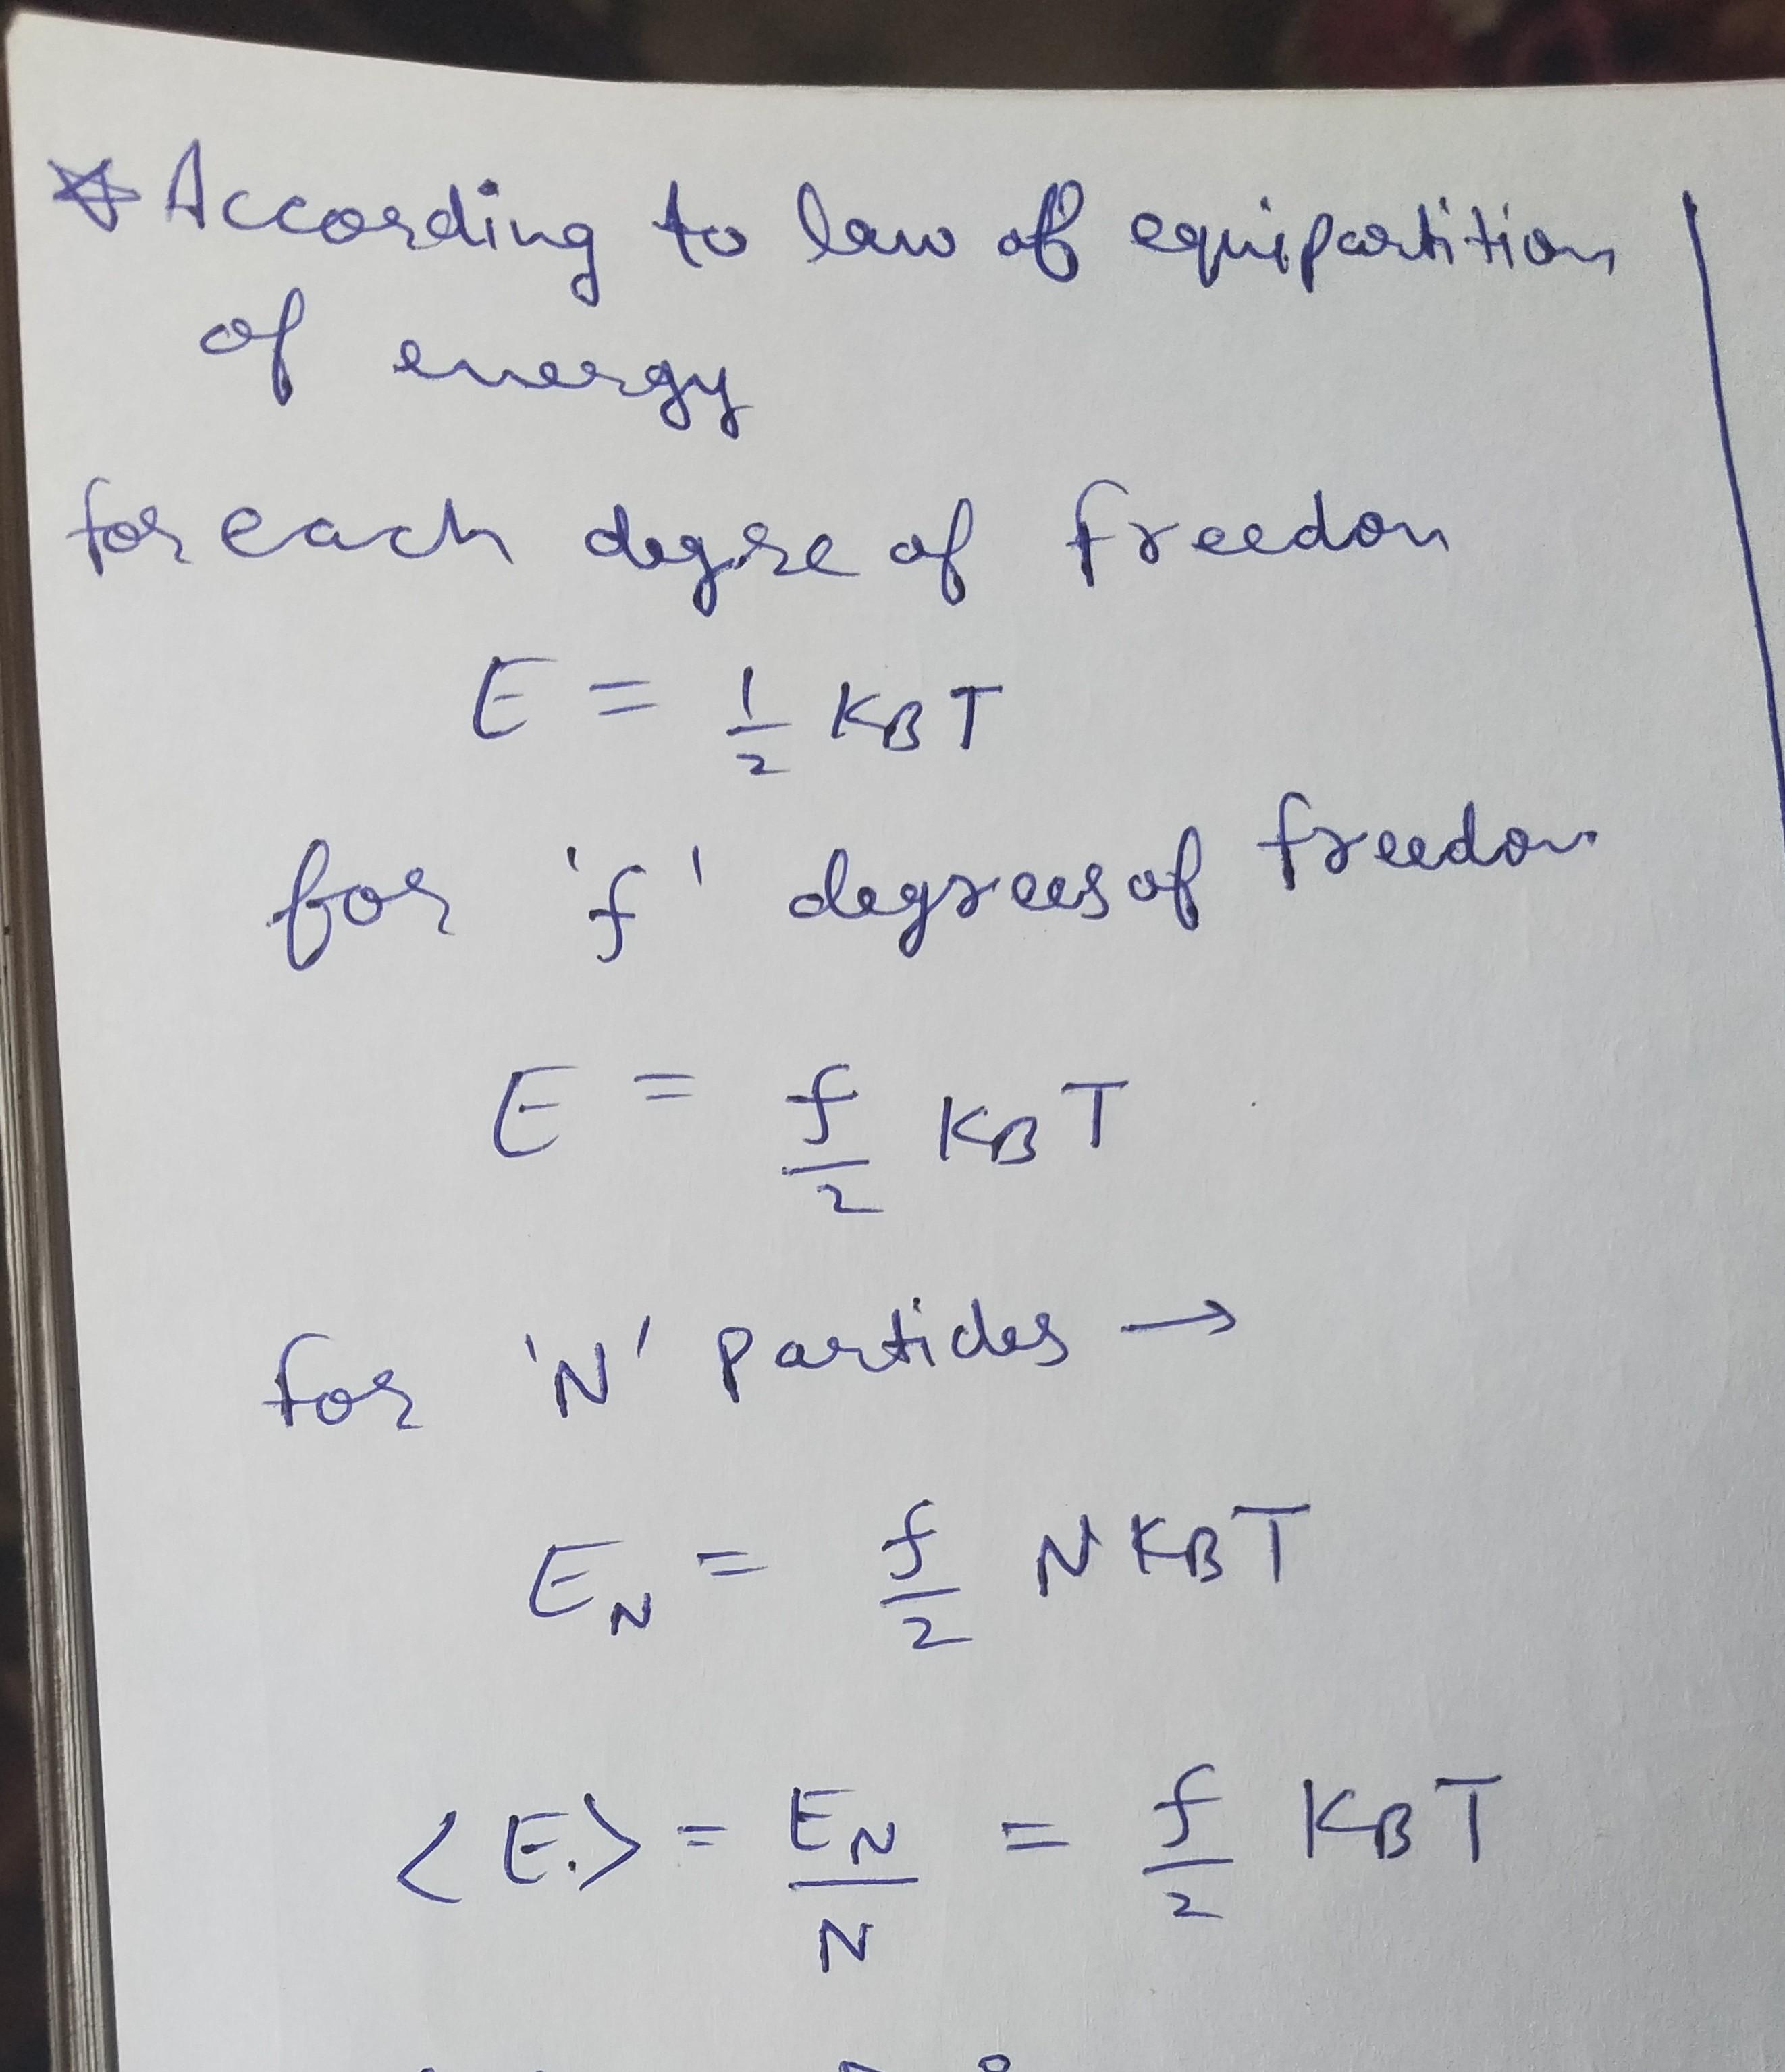 ☆ According to law of equipartition
of energy
for each degree of freedon
E = 1/2 KBT
for 'f' degrees of freedom
E = f/2 KBT
for 'N' particles →
EN = f/2 NKBT
<E.> = EN/N = f/2 KBT